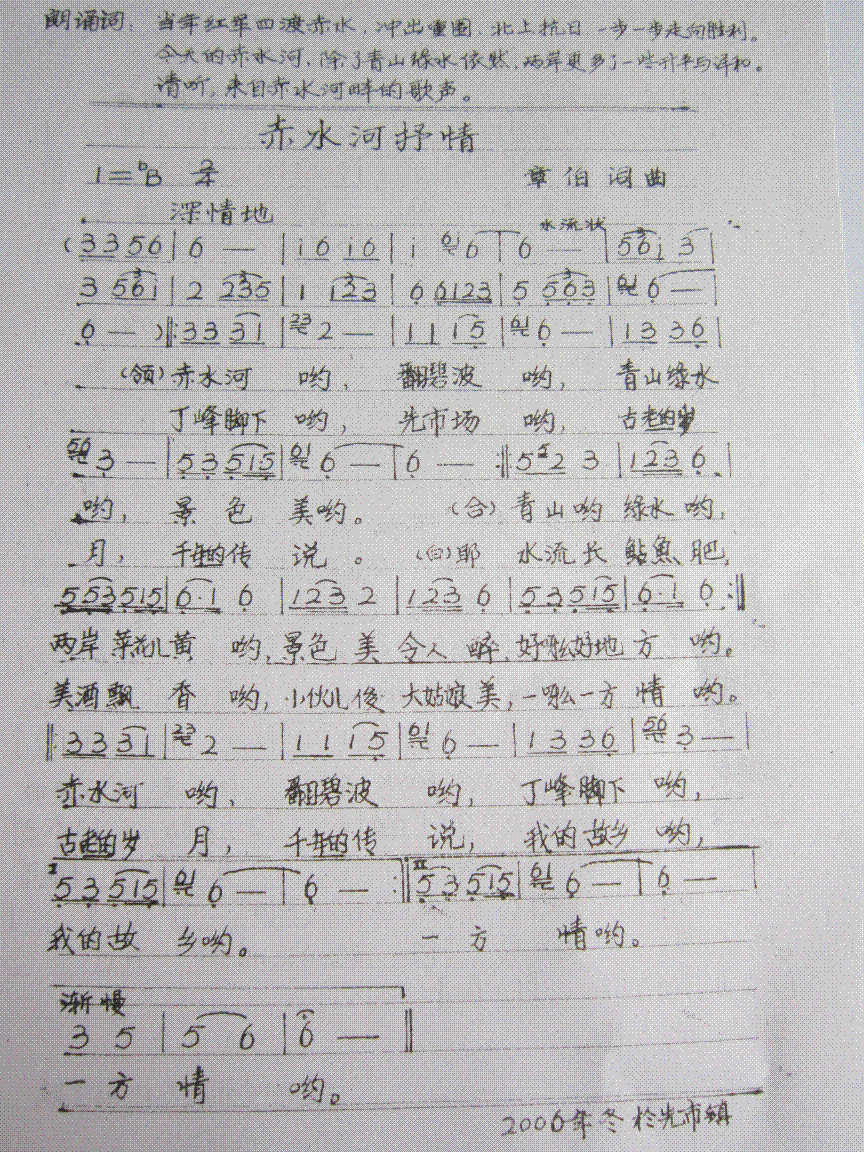 朗诵词：当年红军四渡赤水，冲出重围，北上抗日一步一步走向胜利。
今天的赤水河，除了青山绿水依然，两岸更多了一些升平与详和。
请听，来自赤水河畔的歌声。
赤水河抒情
1=bB 2/4 章伯词曲
深情地
水流状
(3 3 5 6 | 6 — | i 6 i 6 | i 6i 6 | 6 — | 5 6 i 3 |
3 5 6 i | 2 2 3 5 | 1 1 2 3 | 6 6 1 2 3 | 5 5 6 3 | 61 6 — |
6 — )‖: 3 3 3 1 | 23 2 — | 1 1 1 5 | 61 6 — | 1 3 3 6 |
(领)赤水河 哟， 翻碧波 哟， 青山绿水
丁峰脚下 哟， 先市场 哟， 古老的岁
56 3 — | 5 3 5 1 5 | 61 6 — | 6 — :‖ 5 5 2 3 | 1 2 3 6 |
哟， 景色 美哟。 (合)青山哟 绿水哟，
月， 千年的传 说。 (白)耶 水流长 鲇鱼肥，
5 5 3 5 1 5 | 6·1 6 | 1 2 3 2 | 1 2 3 6 | 5 3 5 1 5 | 6·1 6 :‖
两岸菜花儿黄 哟，景色美 令人醉，好呀么好地方 哟。
美酒飘 香 哟，小伙儿俊 大姑娘美，一呀么一方情 哟。
‖: 3 3 3 1 | 23 2 — | 1 1 1 5 | 61 6 — | 1 3 3 6 | 56 3 — |
赤水河 哟， 翻碧波 哟， 丁峰脚下 哟，
古老的岁 月， 千年的传 说， 我的故乡 哟，
I 5 3 5 1 5 | 61 6 — | 6 — :‖ II 5 3 5 1 5 | 61 6 — | 6 — |
我的故 乡哟。 一方 情哟。
渐慢
3 5 | 5 6 | 6 — ‖
一方 情 哟。
2006年冬 於先市镇